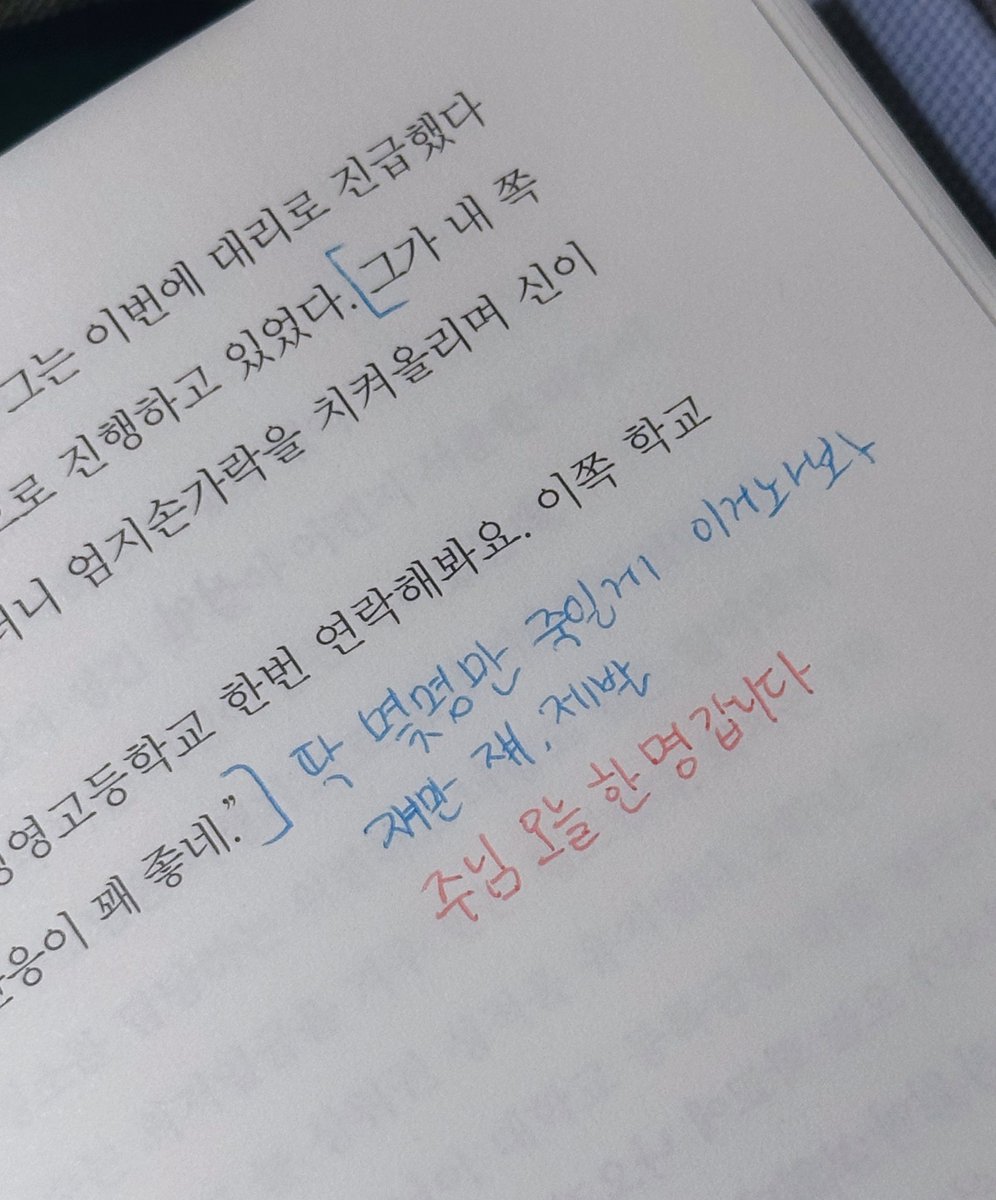 그는 이번에 대리로 진급했다
로 진행하고 있었다. [그가 내 쪽
니 엄지손가락을 치켜올리며 신이
영고등학교 한번 연락해봐요. 이쪽 학교
응이 꽤 좋네.”] 딱 몇명만 죽일게 이거놔봐
쟤만 쟤. 제발
주님 오늘 한 명 갑니다